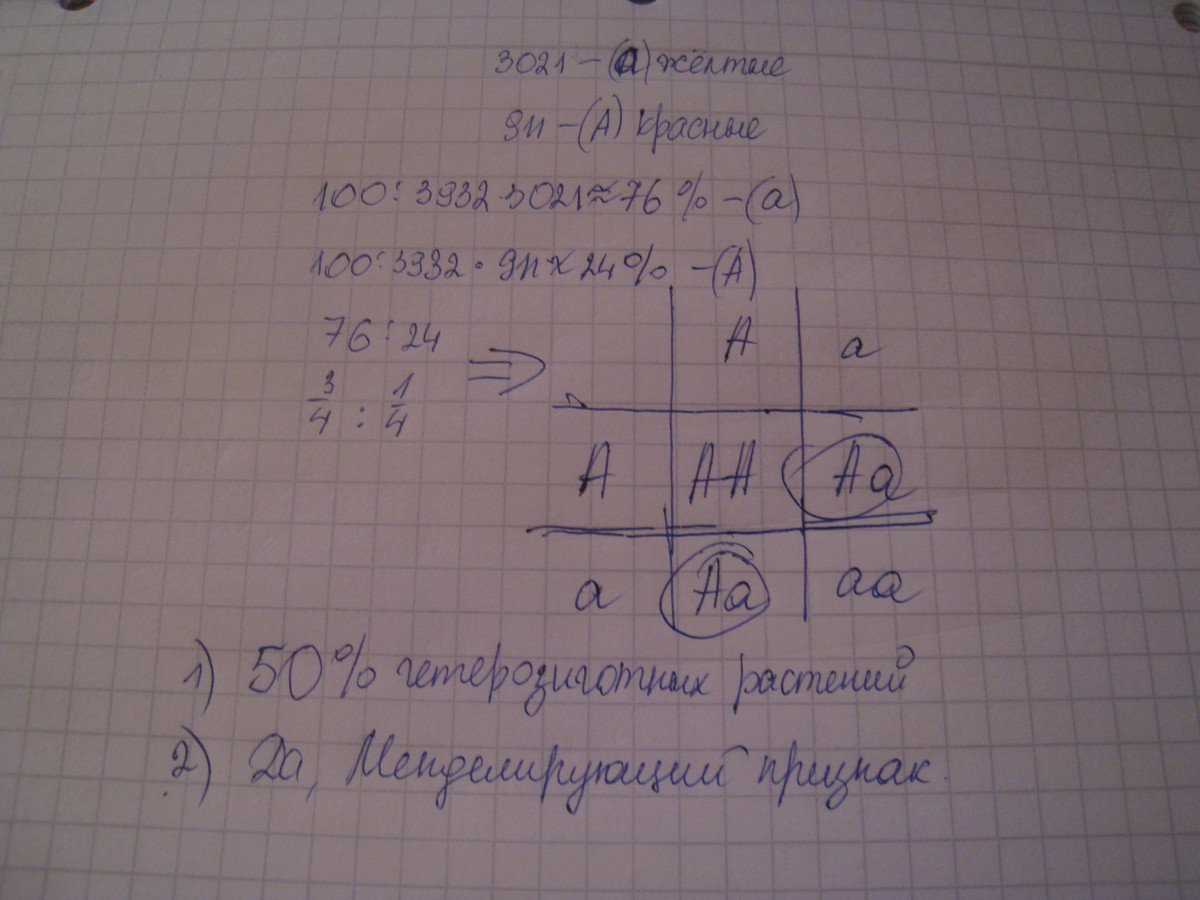 3021 – (а) жёлтые
911 – (А) красные
100 : 3932 · 3021 ≈ 76 % – (а)
100 : 3932 · 911 ≈ 24 % – (А)
76 : 24
3/4 : 1/4
⇒
А а
А АА Аа
а Аа аа
1) 50 % гетерозиготных растений
2) Да, Менделирующий признак.